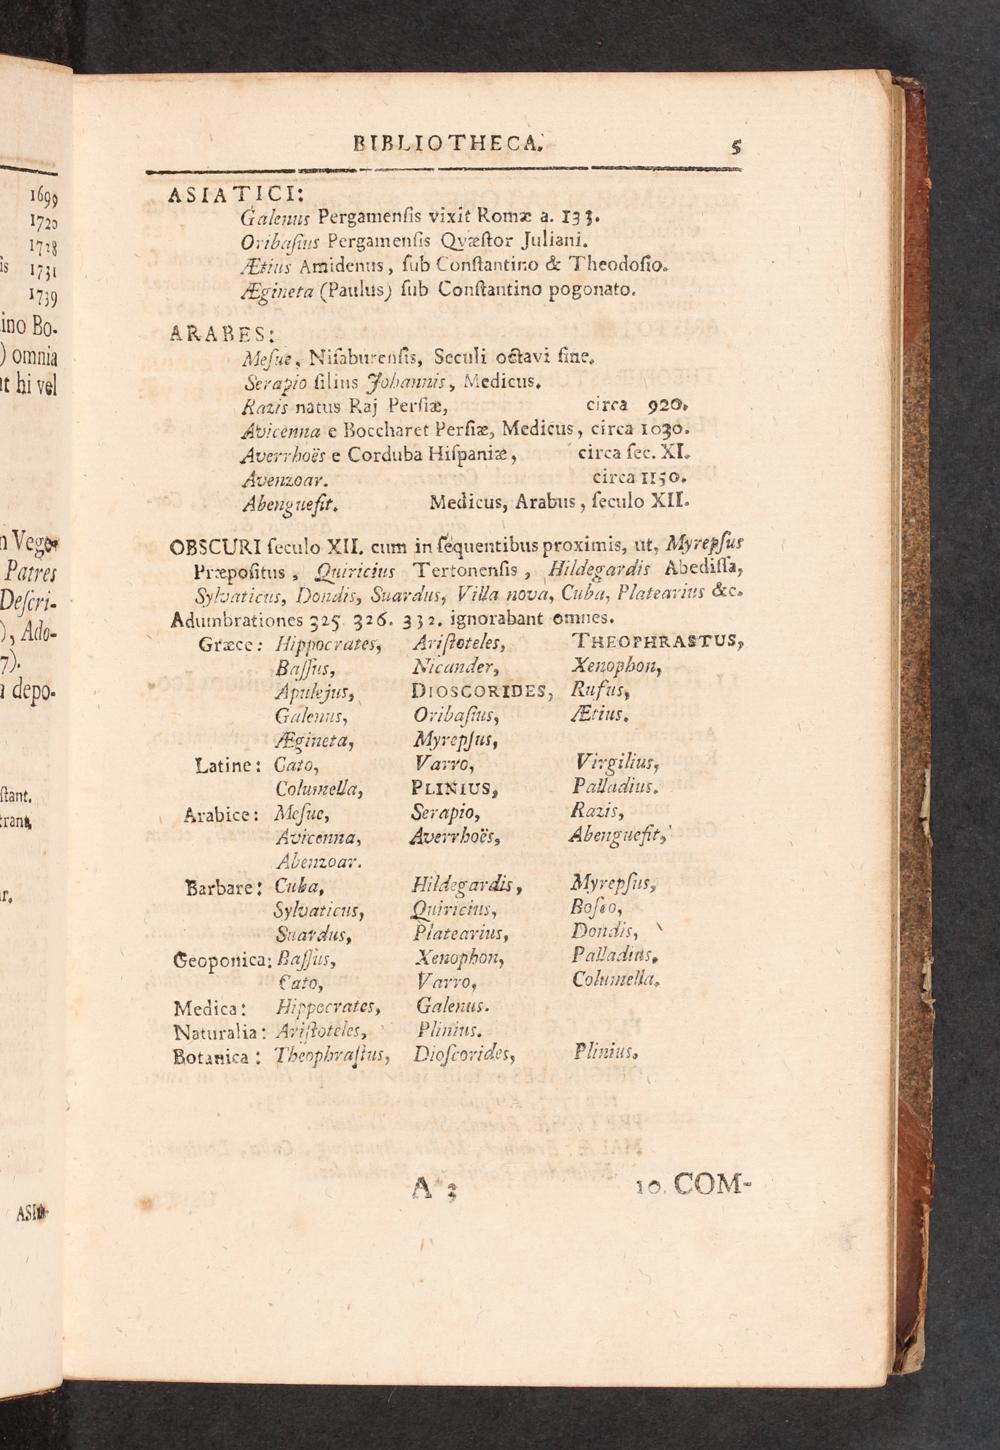 1699
1720
1728
is 1731
1739
ino Bo-
) omnia
ut hi vel
n Vege-
Patres
Descri-
), Ado-
7).
a depo-
stant.
trant,
r,
ASIA-
BIBLIOTHECA. 5
ASIATICI:
Galenus Pergamenſis vixit Romæ a. 133.
Oribaſius Pergamenſis Qvæſtor Juliani.
Ætius Amidenus, ſub Conſtantino & Theodoſio.
Ægineta (Paulus) ſub Conſtantino pogonato.
ARABES:
Meſue, Niſaburenſis, Seculi octavi fine.
Serapio filius Johannis, Medicus.
Razis natus Raj Perſiæ, circa 920.
Avicenna e Boccharet Perſiæ, Medicus, circa 1030.
Averrhoës e Corduba Hiſpaniæ, circa ſec. XI.
Avenzoar. circa 1150.
Abenguefit. Medicus, Arabus, ſeculo XII.
OBSCURI ſeculo XII. cum in ſequentibus proximis, ut, Myrepſus
Præpoſitus, Quiricius Tertonenſis, Hildegardis Abediſſa,
Sylvaticus, Dondis, Suardus, Villa nova, Cuba, Platearius &c.
Adumbrationes 325. 326. 332. ignorabant omnes.
Græce: Hippocrates, Ariſtoteles, THEOPHRASTUS,
Baſſus, Nicander, Xenophon,
Apulejus, DIOSCORIDES, Rufus,
Galenus, Oribaſius, Ætius.
Ægineta, Myrepſus,
Latine: Cato, Varro, Virgilius,
Columella, PLINIUS, Palladius.
Arabice: Meſue, Serapio, Razis,
Avicenna, Averrhoës, Abenguefit,
Abenzoar.
Barbare: Cuba, Hildegardis, Myrepſus,
Sylvaticus, Quiricius, Bosco,
Suardus, Platearius, Dondis,
Geoponica: Baſſus, Xenophon, Palladius.
Cato, Varro, Columella.
Medica: Hippocrates, Galenus.
Naturalia: Ariſtoteles, Plinius.
Botanica: Theophraſtus, Dioſcorides, Plinius.
A 3 10. COM-